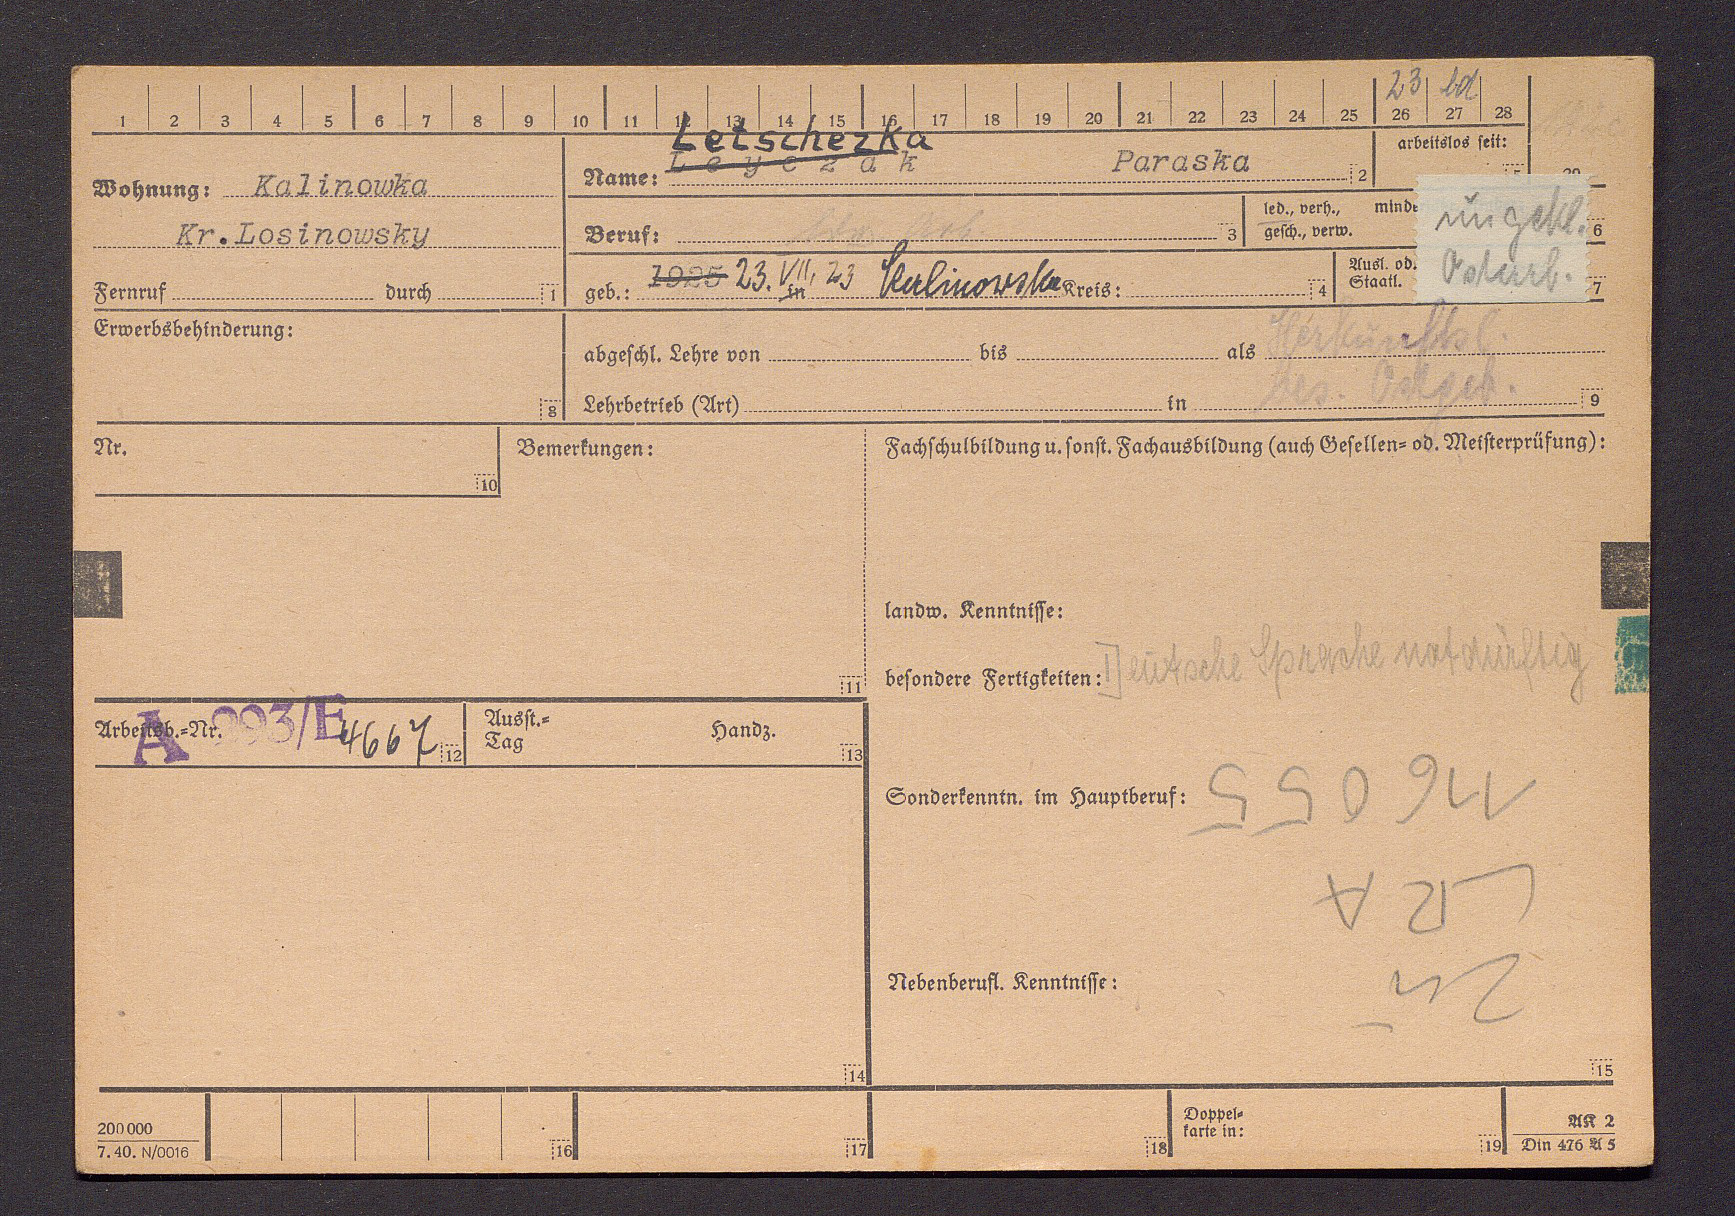 23 bd
1 2 3 4 5 6 7 8 9 10 11 12 13 14 15 16 17 18 19 20 21 22 23 24 25 26 27 28
Letschezka
arbeitslos seit:
Wohnung: Kalinowka
Name: Leyczak Paraska 2
5 29
Kr.Losinowsky
Beruf: Ldw. Arb. 3
led., verh., minde
gesch., verw.
ungekl.
Ostarb.
6
Fernruf durch 1
geb.: 1925 23. VII. 23 in Kalinowska Kreis: 4
Ausl. od.
Staatl.
7
Erwerbsbehinderung: 8
Herkunftsl.
abgeschl. Lehre von bis als
bes. Ostgeb.
Lehrbetrieb (Art) in 9
Nr. 10
Bemerkungen: 11
Fachschulbildung u. sonst. Fachausbildung (auch Gesellen- od. Meisterprüfung):
landw. Kenntnisse:
besondere Fertigkeiten: Deutsche Sprache notdürftig
Arbeitsb.-Nr. A 993/E 4667 12
Ausst.-
Tag
Handz. 13
Sonderkenntn. im Hauptberuf:
116055
LRA
Nebenberufl. Kenntnisse:
14 15
200 000
7. 40. N/0016
16 17 18
Doppel-
karte in: 19
AK 2
Din 476 A 5